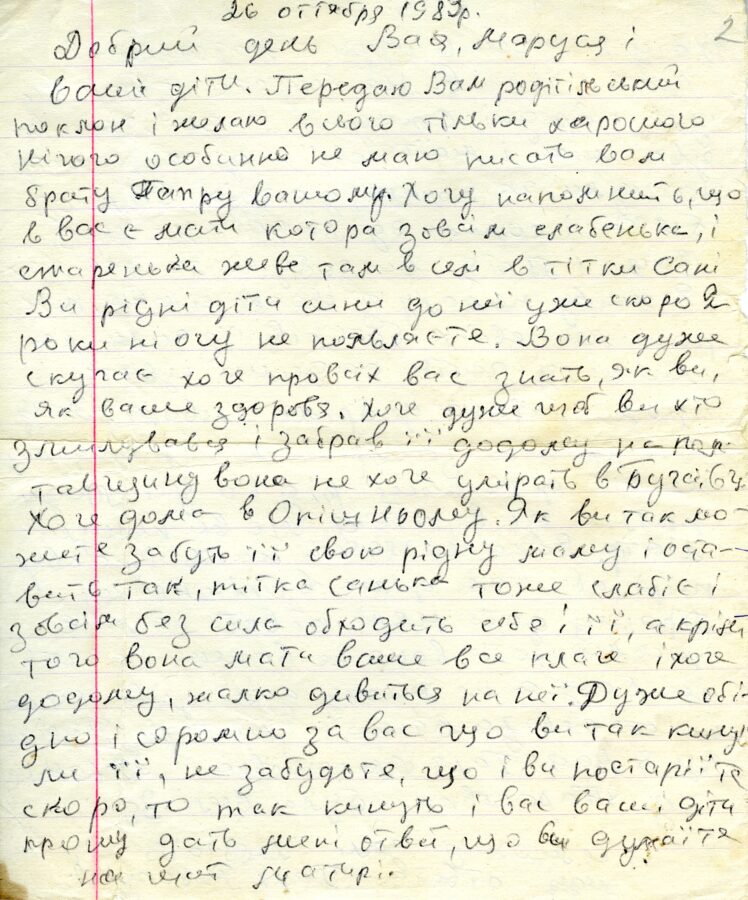 26 оттября 1983р.
2
Добрий день Вася, Маруся і
ваші діти. Передаю Вам родітільський
поклон і жолаю всього тільки харошого
нічого особинно не маю писать вам
брату вашому. Хочу напомнить, що
в вас є мати котора зовсім слабенька, і
старенька живе там в селі в тітки Сані
Ви рідні діти сини до неї уже скоро 2
роки ні очу не появляєте. Вона дуже
скучає хоче про всіх вас знать, як ви,
як ваше здоровя. Хоче дуже щоб ви хто
змилувався і забрав її додому на пол-
тавщину вона не хоче умірать в
Хоче дома в Опішньому. Як ви так мо-
жите забуть її свою рідну маму і оста-
вить так, тітка Санька тоже слабіє і
зовсім без сила обходить себе і її, а крім
того вона мати ваше все плаче і хоче
додому, жалко дивиться на неї. Дуже обі-
дно і соромно за вас що ви так кину
ли її, не забудьте, що і ви постарієте
скоро, то так кинуть і вас ваші діти
прошу дать мені отвіт, що ви думаїте
на щот матирі.